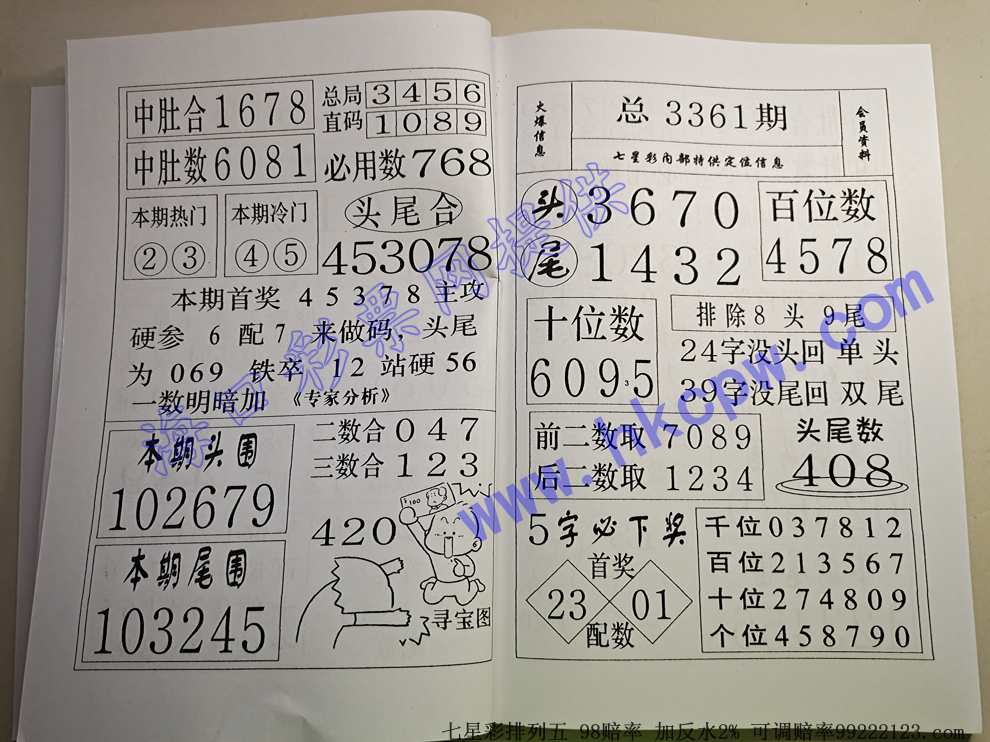 中肚合1678
总局 3 4 5 6
直码 1 0 8 9
中肚数6081
必用数768
本期热门
②③
本期冷门
④⑤
头尾合
453078
本期首奖 45378主攻
硬参 6 配7 来做码,头尾
为 069 铁卒 12 站硬56
一数明暗加 《专家分析》
本期头围
102679
二数合 047
三数合 123
本期尾围
103245
420
100
寻宝图
火爆信息
总 3361期
七星彩内部特供定位信息
会员资料
头 3670
尾 1432
百位数
4578
十位数
6095
排除8 头 9尾
24字没头回 单 头
39字没尾回 双 尾
前二数取 7089
后二数取 1234
头尾数
408
5字必下奖
首奖
23 01
配数
千位037812
百位213567
十位274809
个位458790
海口彩票网提供
www.hkcpw.com
七星彩排列五 98赔率 加反水2% 可调赔率99222123.com